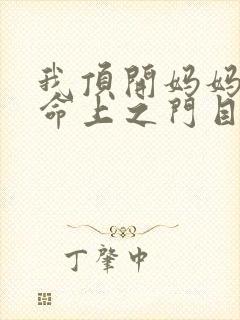 我顶開妈妈
命上之門目
丁肇中